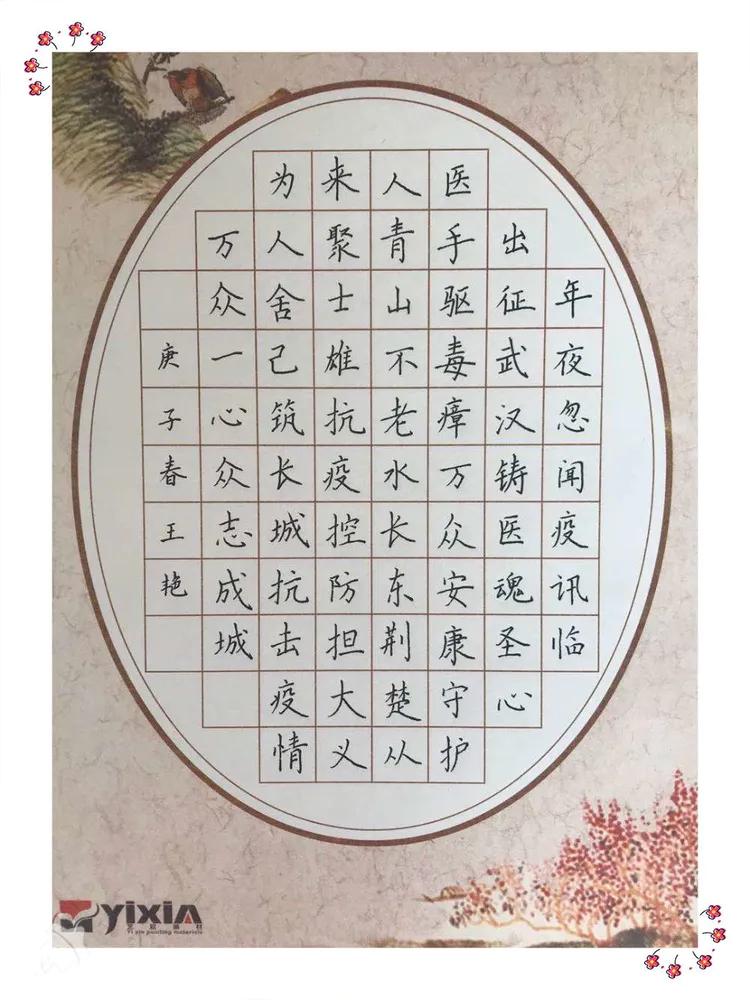 年夜忽闻疫讯临
出征武汉铸医魂圣心
医手驱毒瘴万众安康守护
人青山不老水长东荆楚从
来聚士雄抗疫控防担大义
为人舍己筑长城抗击疫情
万众一心众志成城
庚子春王艳
yixin
Yi xin painting materials